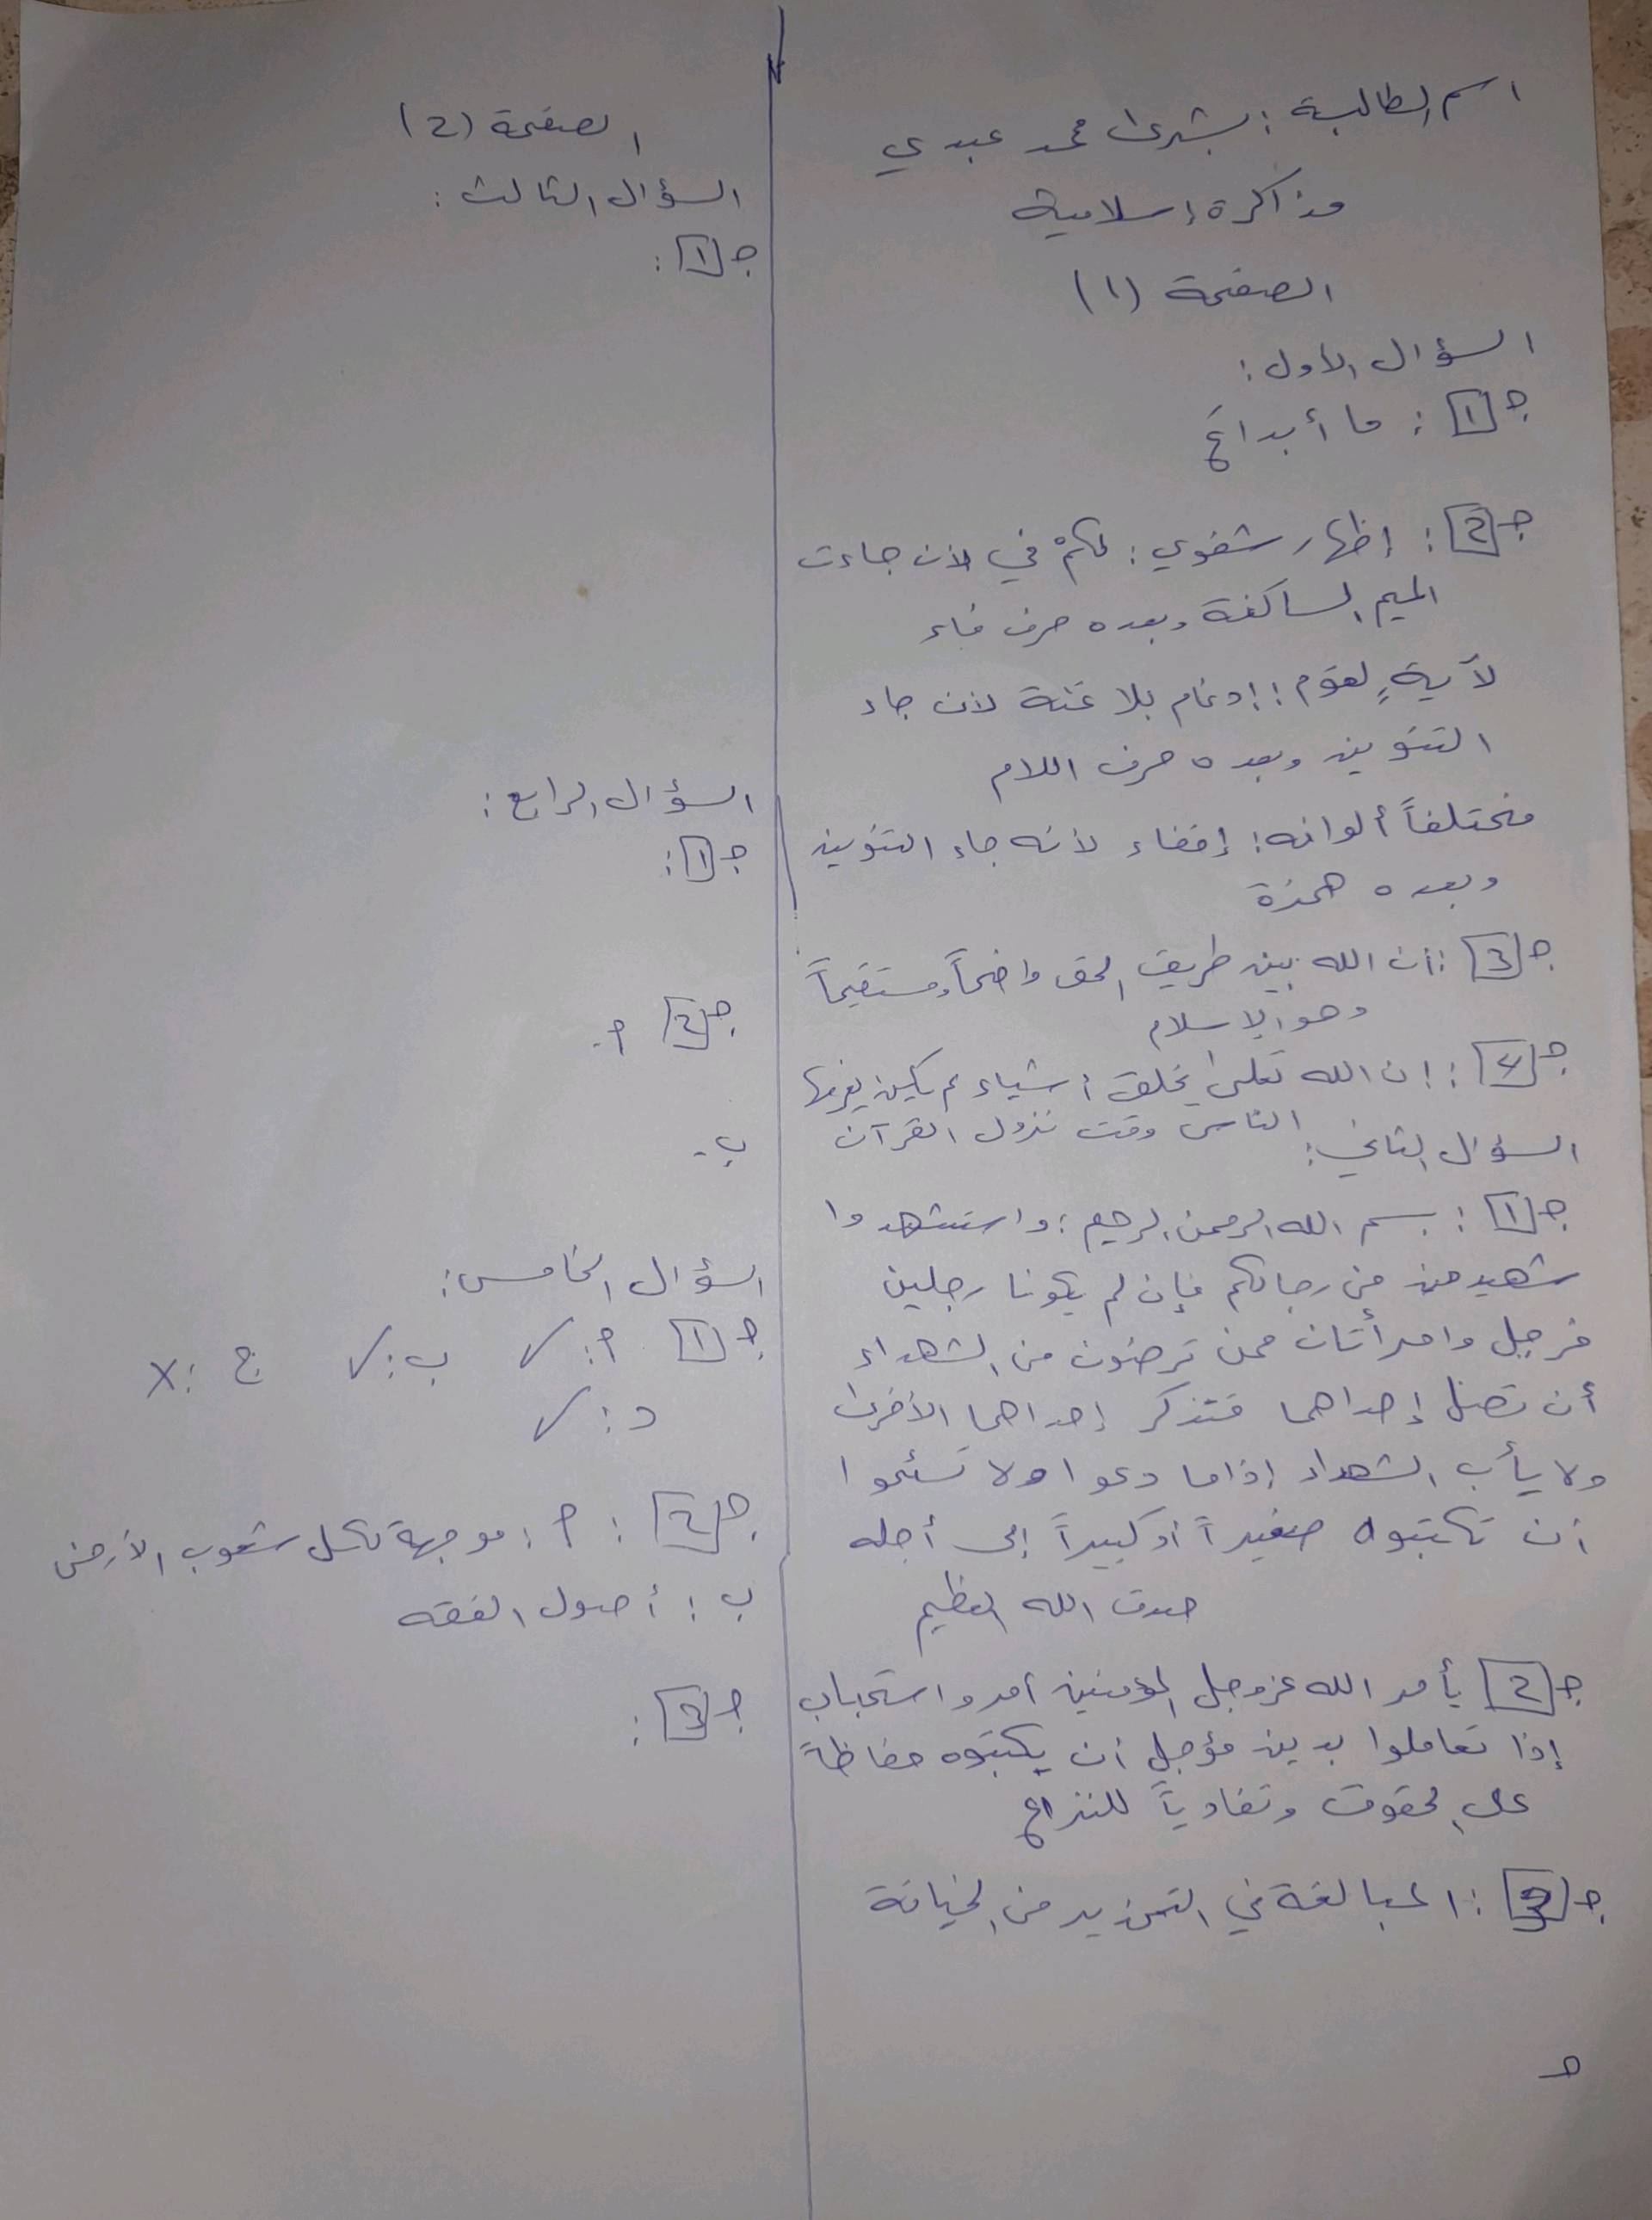 اسم الطالبة : بشرى محمد عبدي
مذاكرة إسلامية
الصفحة (١)
السؤال الأول :
جـ ١ : ما أبداعَ
جـ 2 : إظهار شفوي : لكمْ في لأن جاءت
الميم الساكنة وبعده حرف فاء
لآيةٍ لقوم : إدغام بلا غنة لأن جاء
التنوين وبعده حرف اللام
مختلفاً ألوانه : إخفاء لأنه جاء التنوين
وبعده همزة
جـ 3 : أن الله يبين طريق الحق واضحاً ومستقيماً
وهو الإسلام
جـ 4 : إن الله تعلى يخلق أشياء لم يكن يعرفها
الناس وقت نزول القرآن
السؤال الثاني :
جـ ١ : بسم الله الرحمن الرحيم : واستشهدوا
شهيدين من رجالكم فإن لم يكونا رجلين
فرجل وامرأتان ممن ترضون من الشهداء
أن تضل إحداهما فتذكر إحداهما الأخرى
ولا يأب الشهداء إذا ما دعوا ولا تسئموا
أن تكتبوه صغيراً أو كبيراً إلى أجله
صدق الله العظيم
جـ 2 يأمر الله عزوجل المؤمنين أمر واستحباب
إذا تعاملوا بدين مؤجل أن يكتبوه حفاظاً
على الحقوق وتفادياً للنزاع
جـ 3 : المبالغة في التحذير من الخيانة
جـ
الصفحة (2)
السؤال الثالث :
جـ ١ :
السؤال الرابع :
جـ ١ :
جـ 2 أ-
ب-
السؤال الخامس :
جـ ١ أ : ✓ ب : ✓ ج : X
د : ✓
جـ 2 : أ : موجهة لكل شعوب الأرض
ب : أصول الفقه
جـ 3 :